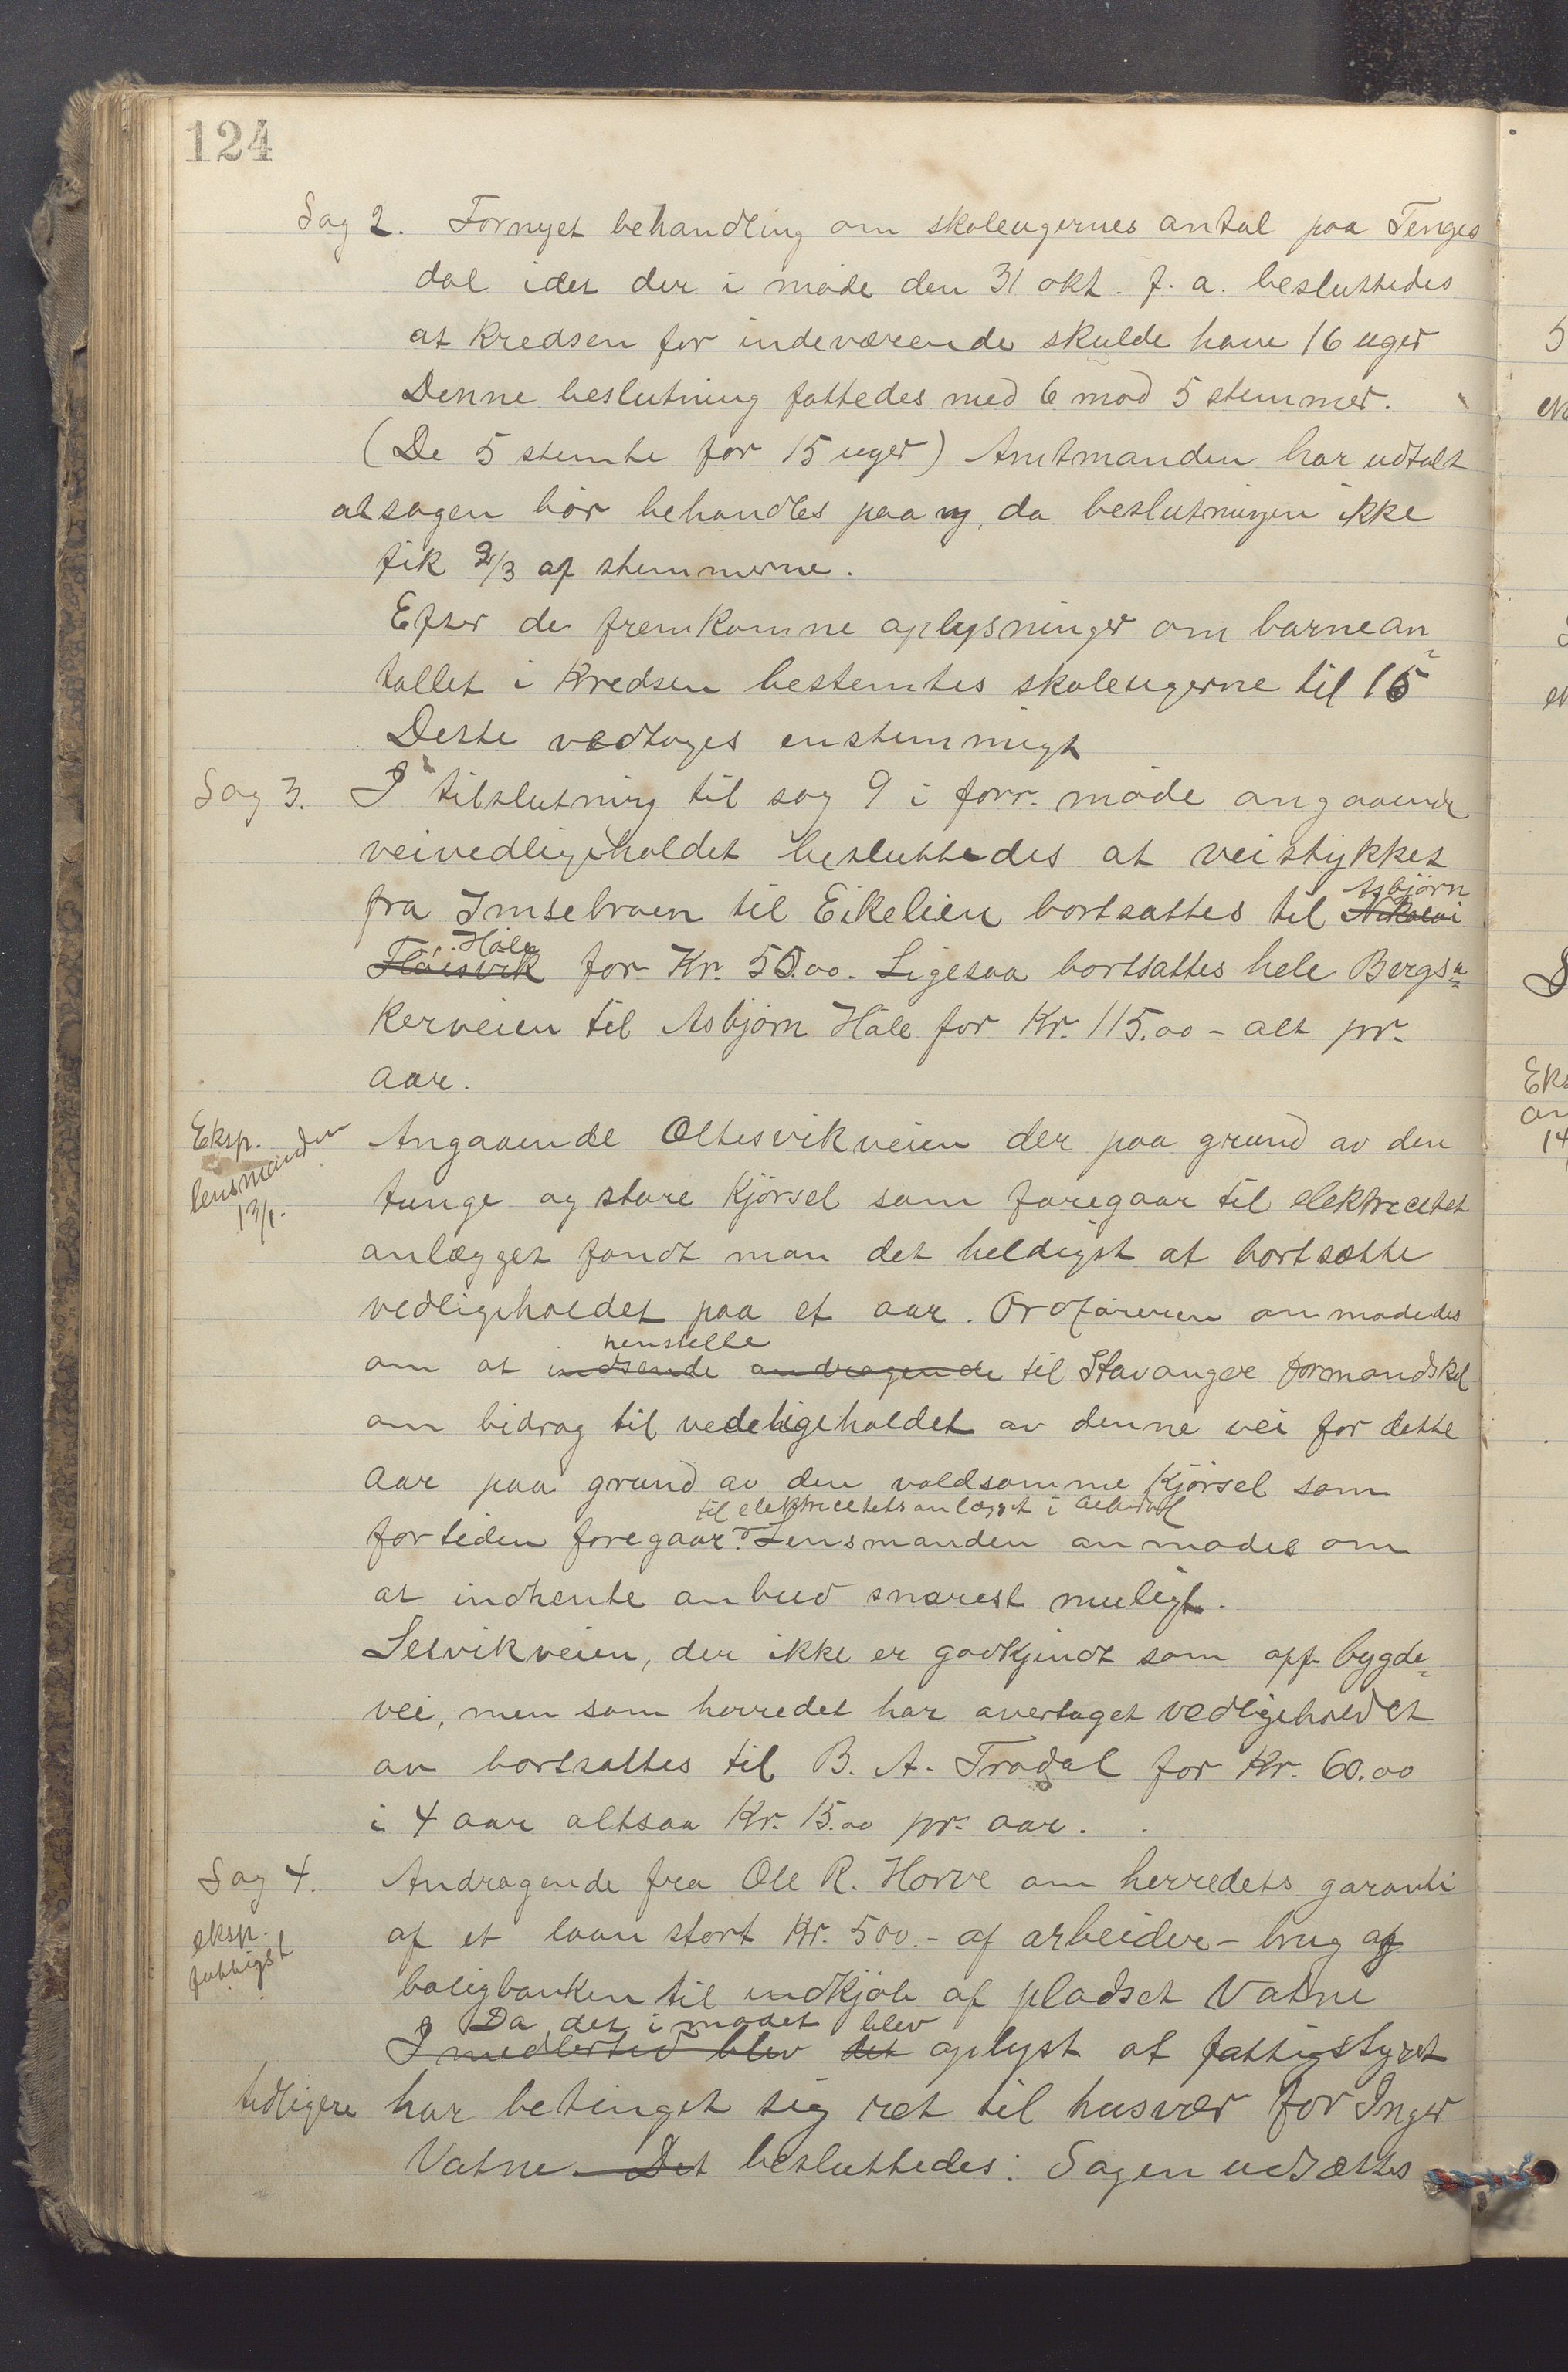 124
Sag 2. Fornyet behandling om skoleugernes antal paa Tenges
dal idet der i møde den 31 okt. f. a. besluttedes
at kredsen for indeværende skulde have 16 uger
Denne beslutning fattedes med 6 mod 5 stemmer.
(De 5 stemte for 15 uger) Amtmanden har udtalt
at sagen bør behandles paa ny, da beslutningen ikke
fik 2/3 af stemmerne.
Efter de fremkomne oplysninger om barnean=
tallet i kredsen bestemtes skoleugerne til 15
Dette vedtoges enstemmigt
Sag 3. I tilslutning til sag 9 i forr. møde angaaende
veivedligeholdet besluttedes at veistykket
Asbjørn
fra Imsebroen til Eikelien bortsattes til Nikolai
Håle
Fløisvik for Kr. 50.00. Ligesaa bortsattes hele Bergsa=
kerveien til Asbjørn Håle for Kr. 115.00 - alt pr.
aar.
Eksp. lensmanden 13/1.
Angaaende Oltesvikveien der paa grund av den
tunge og store kjørsel som foregaar til elektricitet
anlægget fandt man det heldigst at bortsætte
vedligeholdet paa et aar. Ordføreren anmodedes
henstille
om at indsende andragende til Stavanger formandskel
om bidrag til vedeligeholdet av denne vei for dette
aar paa grund av den voldsomme kjørsel som
til elektricitetsanlægget i
fortiden foregaar. Lensmanden anmodes om
at indhente anbud snarest muligt.
Selvikveien, der ikke er godkjendt som off bygde=
vei, men som herredet har overtaget vedligeholdet
av bortsattes til B. A. Tradal for Kr. 60.00
i 4 aar altsaa Kr. 15.00 pr. aar.
Sag 4. Andragende fra Ole R. Horve om herredets garanti
eksp. fattigst
af et laan stort Kr. 500.- af arbeider- brug og
boligbanken til indkjøb af pladset Vatne
Da det i mødet blev
Imedlertid blev det oplyst at fattigstyret
tidligere har betinget sig ret til husvær for Inger
Vatne. Det besluttedes: Sagen udsættes